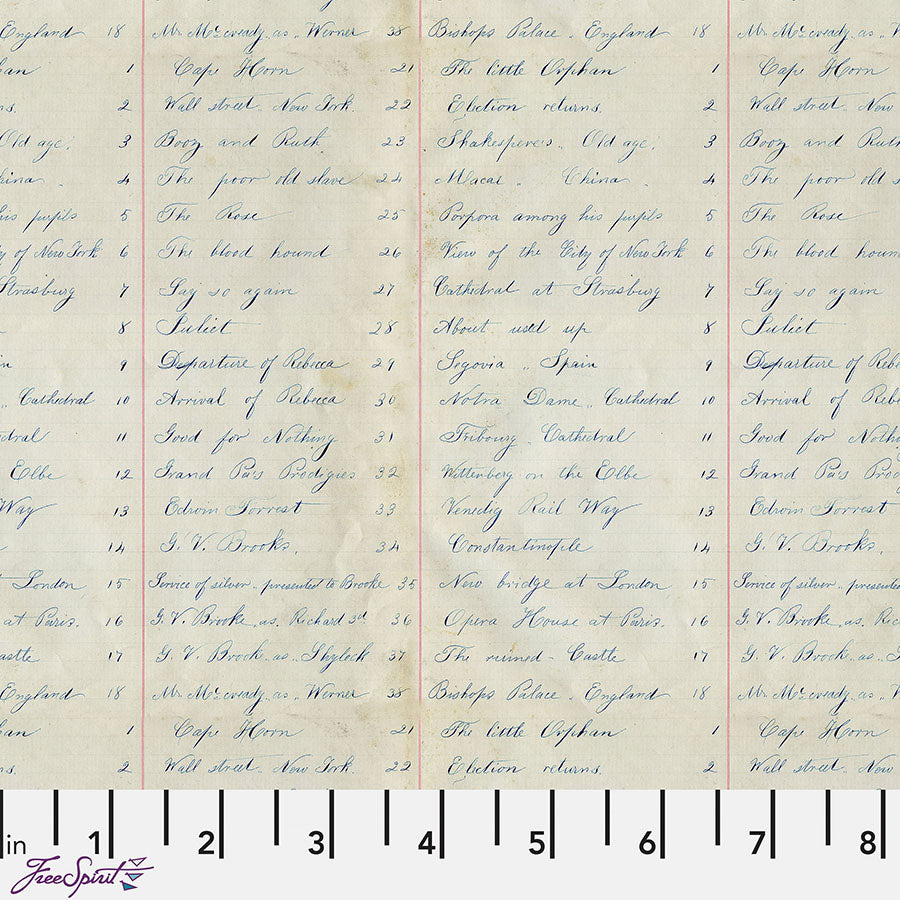 England 18 Mr. McCveady. as. Werner 38 Bishops Palace. England 18 Mr. McCveady. as.
an 1 Cape Horn 21 The little Orphan 1 Cape Horn
ns. 2 Wall street. New York. 22 Election returns. 2 Wall street. New
Old age. 3 Booz and Ruth 23 Shakespere's. Old age. 3 Booz and Ruth
hina. 4 The poor old slave 24 Macai. China. 4 The poor old s
his pupils 5 The Rose 25 Porpora among his pupils 5 The Rose
y of New York 6 The blood hound 26 View of the City of New York 6 The blood houn
Strasburg 7 Say so again 27 Cathedral at Strasburg 7 Say so again
8 Juliet 28 About used up 8 Juliet
n 9 Departure of Rebecca 29 Segovia.. Spain 9 Departure of Rebe
.. Cathedral 10 Arrival of Rebecca 30 Notra Dame.. Cathedral 10 Arrival of Reb
dral 11 Good for Nothing 31 Fribourg. Cathedral 11 Good for Noth
Elbe 12 Grand Pa's Prodigies 32 Wittenberg on the Elbe 12 Grand Pa's Prod
Way 13 Edwin Forrest 33 Venedig Rail Way 13 Edwin Forrest
14 G. V. Brooks. 34 Constantinople 14 G. V. Brooks.
London 15 Service of silver.. presented to Brooke 35 New bridge at London 15 Service of silver.. presented
at Paris. 16 G. V. Brooke. as. Richard 3d 36 Opera House at Paris. 16 G. V. Brooke. as. Ric
astle 17 G. V. Brook. as.. Shylock 37 The ruined - Castle 17 G. V. Brook. as..
England 18 Mr. McCveady. as. Werner 38 Bishops Palace. England 18 Mr. McCveady. as.
an 1 Cape Horn 21 The little Orphan 1 Cape Horn
ns. 2 Wall street. New York. 22 Election returns. 2 Wall street. New
in 1 2 3 4 5 6 7 8
FreeSpirit